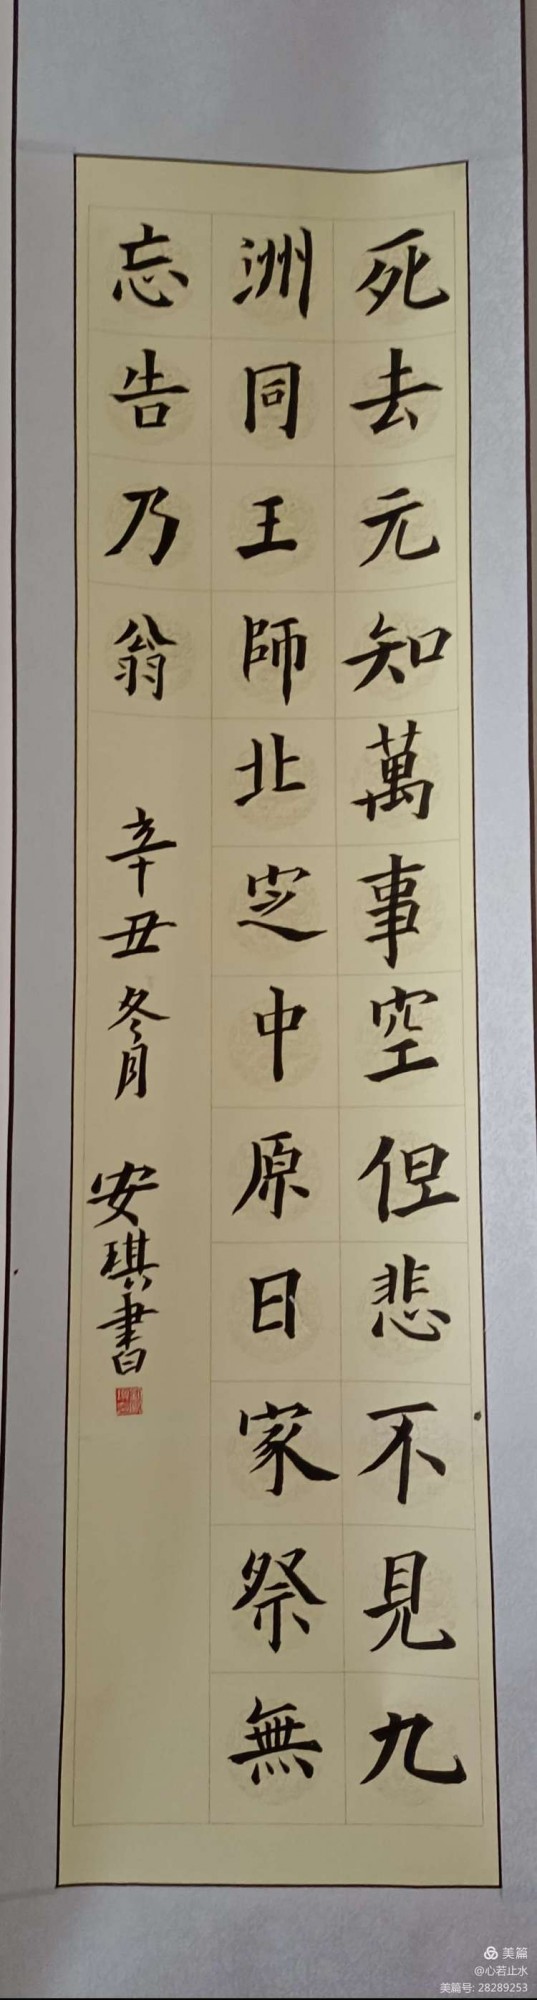 死去元知萬事空但悲不見九
洲同王師北定中原日家祭無
忘告乃翁
辛丑冬月 安琪書
美篇
@心若止水
美篇号: 28289253